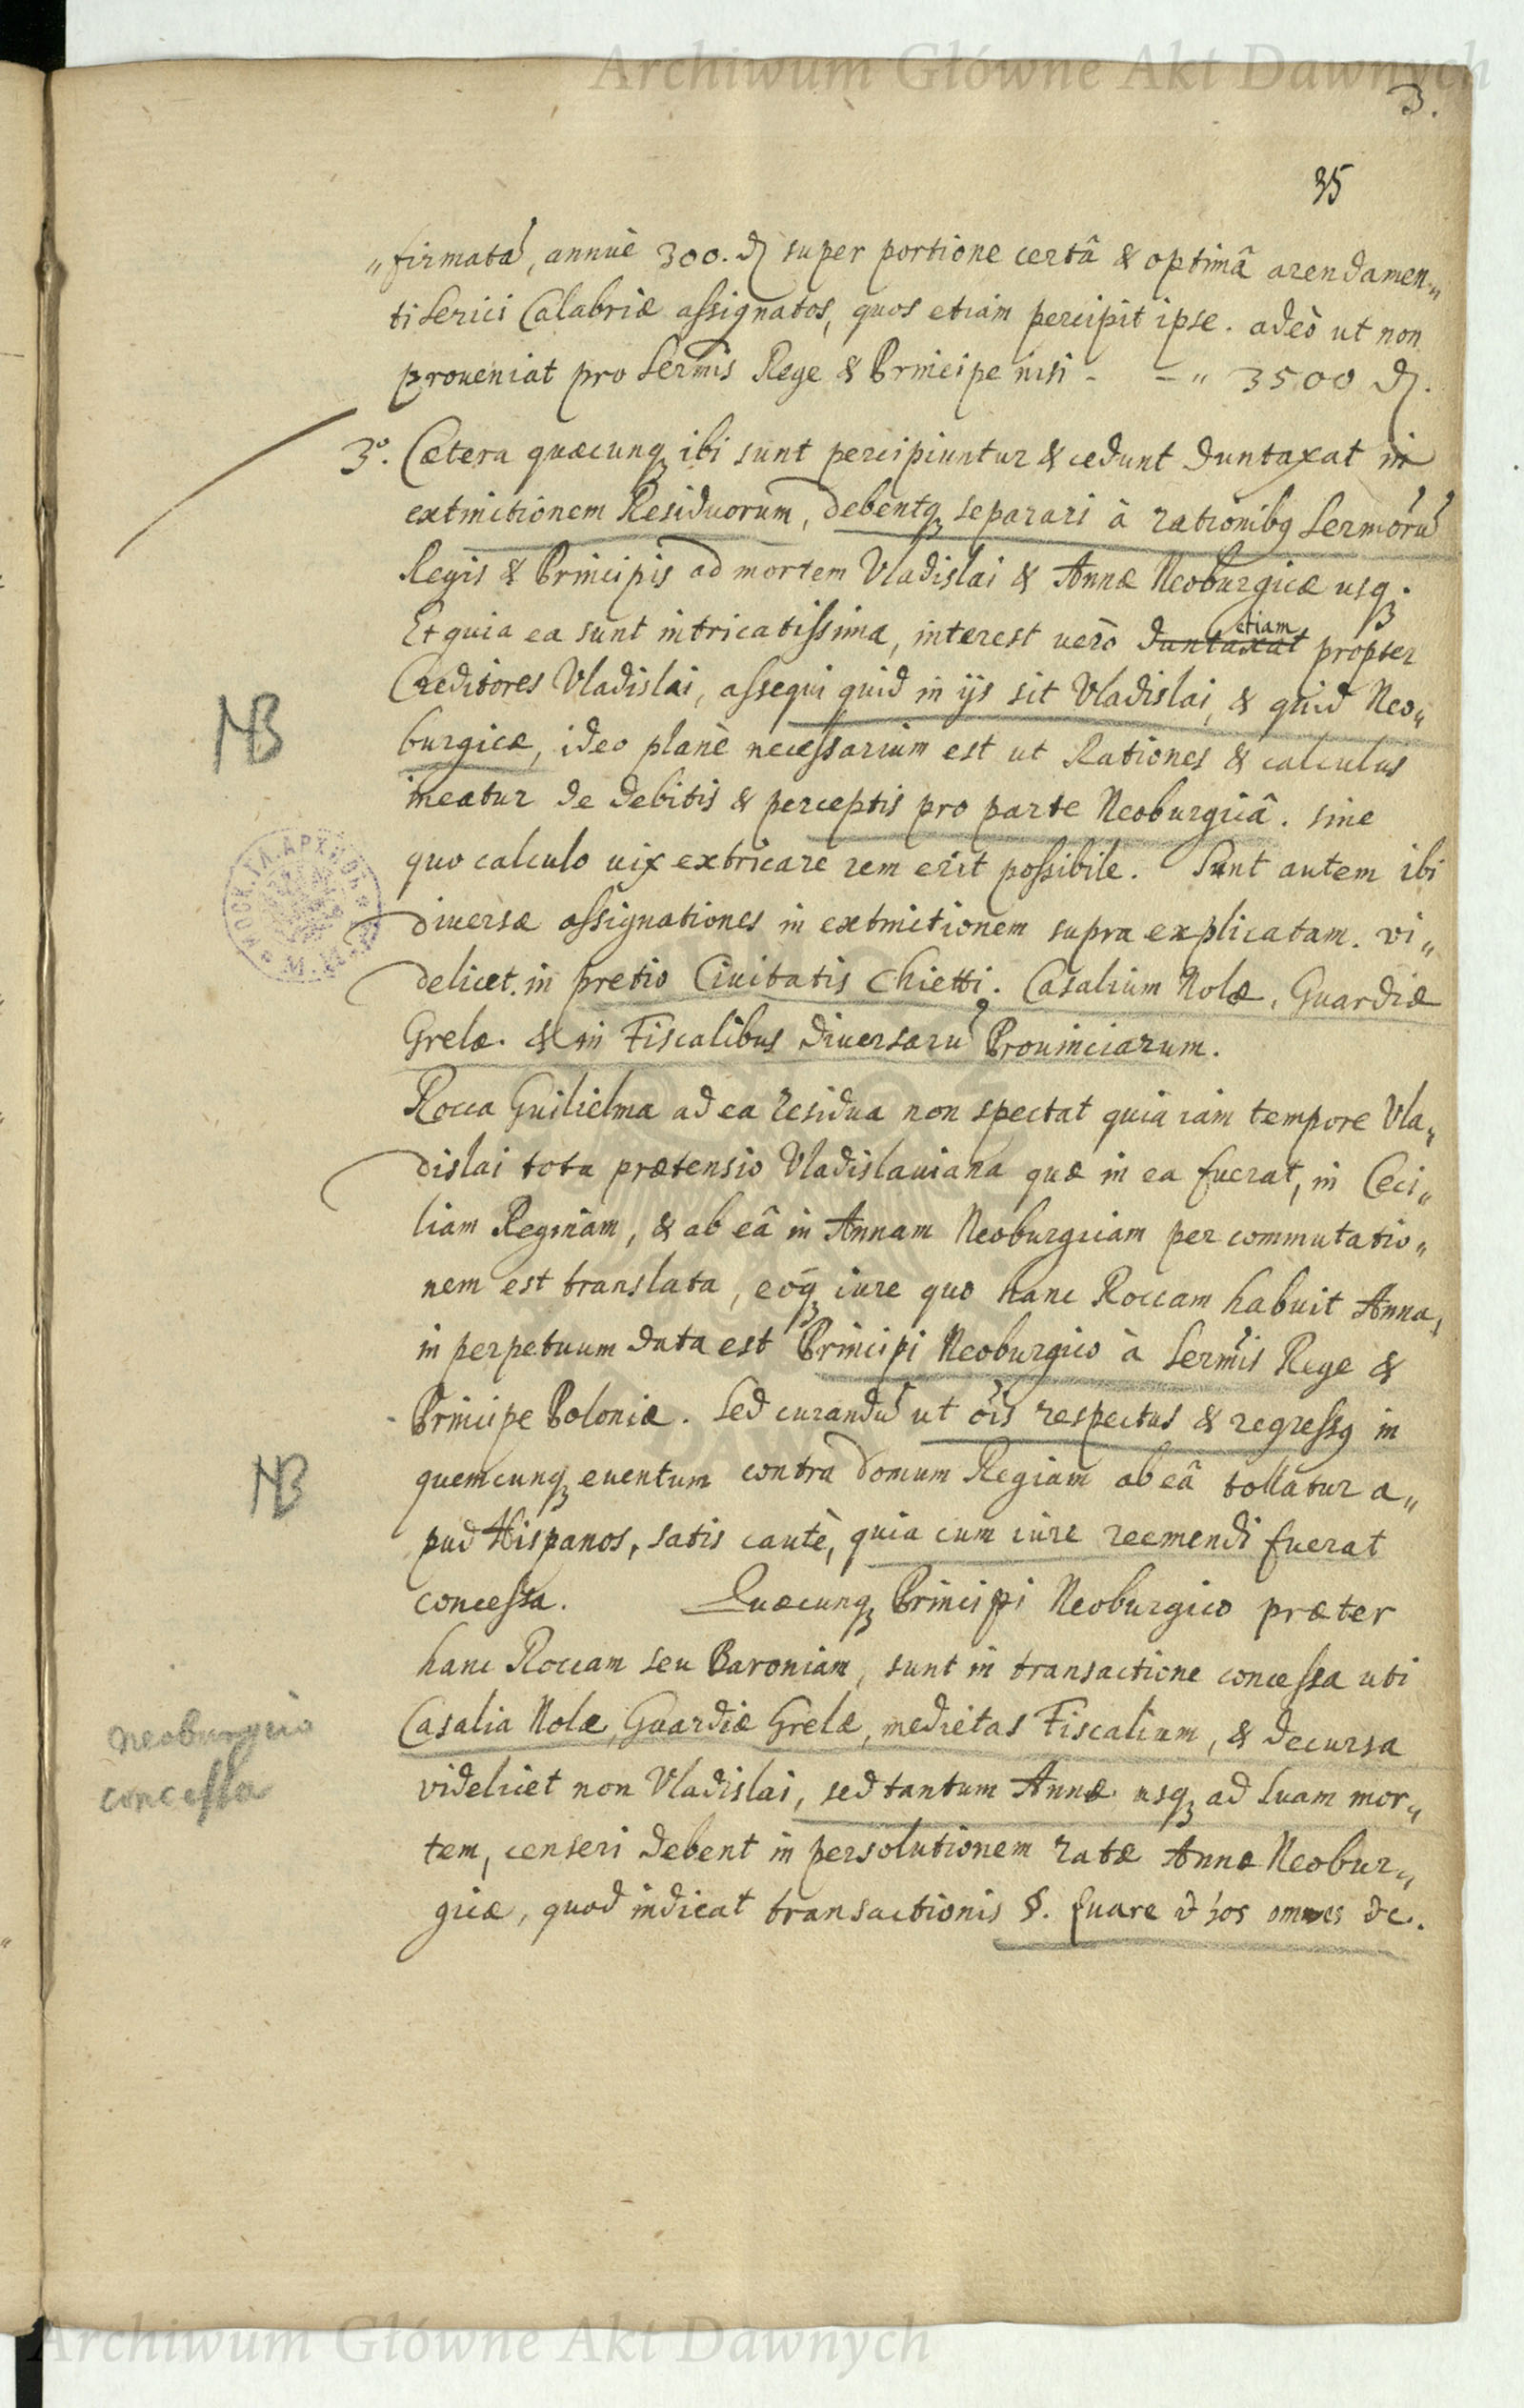 Archiwum Główne Akt Dawnych
3.
35
„firmatâ, annuè 300. d super portione certâ & optimâ arendamen„
ti Serici Calabriæ assignatos, quos etiam percipit ipse. adeò ut non
proueniat pro Sermis Rege & Principe nisi - - „ 3500 d.
3º. Cætera quæcunq ibi sunt percipiuntur & cedunt duntaxat in
extinctionem Residuorum, debentq separari à rationibq Sermorũ
Regis & Principis ad mortem Vladislai & Annæ Neoburgicæ usq.
Et quia ea sunt intricatissima, interest verò duntaxat etiam propter
Creditores Vladislai, assequi quid in ijs sit Vladislai, & quid Neo„
NB
burgicæ, ideo planè necessarium est ut Rationes & calculus
ineatur de debitis & perceptis pro parte Neoburgicâ. sine
quo calculo uix extricare rem erit possibile. Sunt autem ibi
diuersæ assignationes in extinctionem supra explicatam. vi„
delicet. in pretio Ciuitatis Chietti. Casalium Nolæ, Guardiæ
Grelæ. & in Fiscalibus diuersarũ Prouinciarum.
Rocca Guilielma ad ea residua non spectat quia iam tempore Vla„
dislai tota prætensio Vladislauiana quæ in ea fuerat, in Ceci„
liam Reginam, & ab eâ in Annam Neoburgicam per commutatio„
nem est translata, eóq iure quo hanc Roccam habuit Anna,
in perpetuum data est Principi Neoburgico à Sermis Rege &
Principe Poloniæ. Sed curandũ ut õis respectus & regressq in
NB
quemcunq euentum contra domum Regiam ab eâ tollatur a„
pud Hispanos, satis cautè, quia cum iure reemendi fuerat
concessa. Quæcunq Principi Neoburgico præter
hanc Roccam seu Baroniam, sunt in transactione concessa uti
neoburgico
concessa
Casalia Nolæ, Guardiæ Grelæ, medietas Fiscalium, & decursa
videlicet non Vladislai, sed tantum Annæ usq ad suam mor„
tem, censeri debent in persolutionem ratæ Annæ Neobur„
gicæ, quod indicat transactionis §. quare hos omnes &c.
Archiwum Główne Akt Dawnych